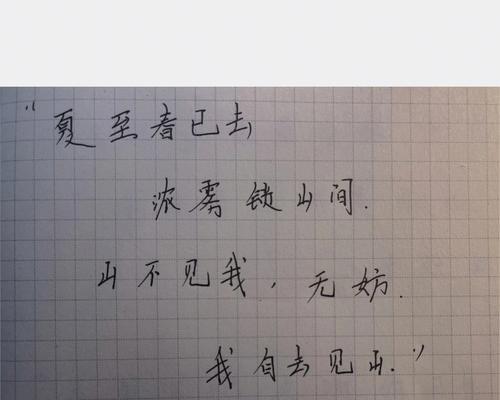 “夏至春已去
浓雾锁山间.
山不见我，无妨.
我自去见山.”